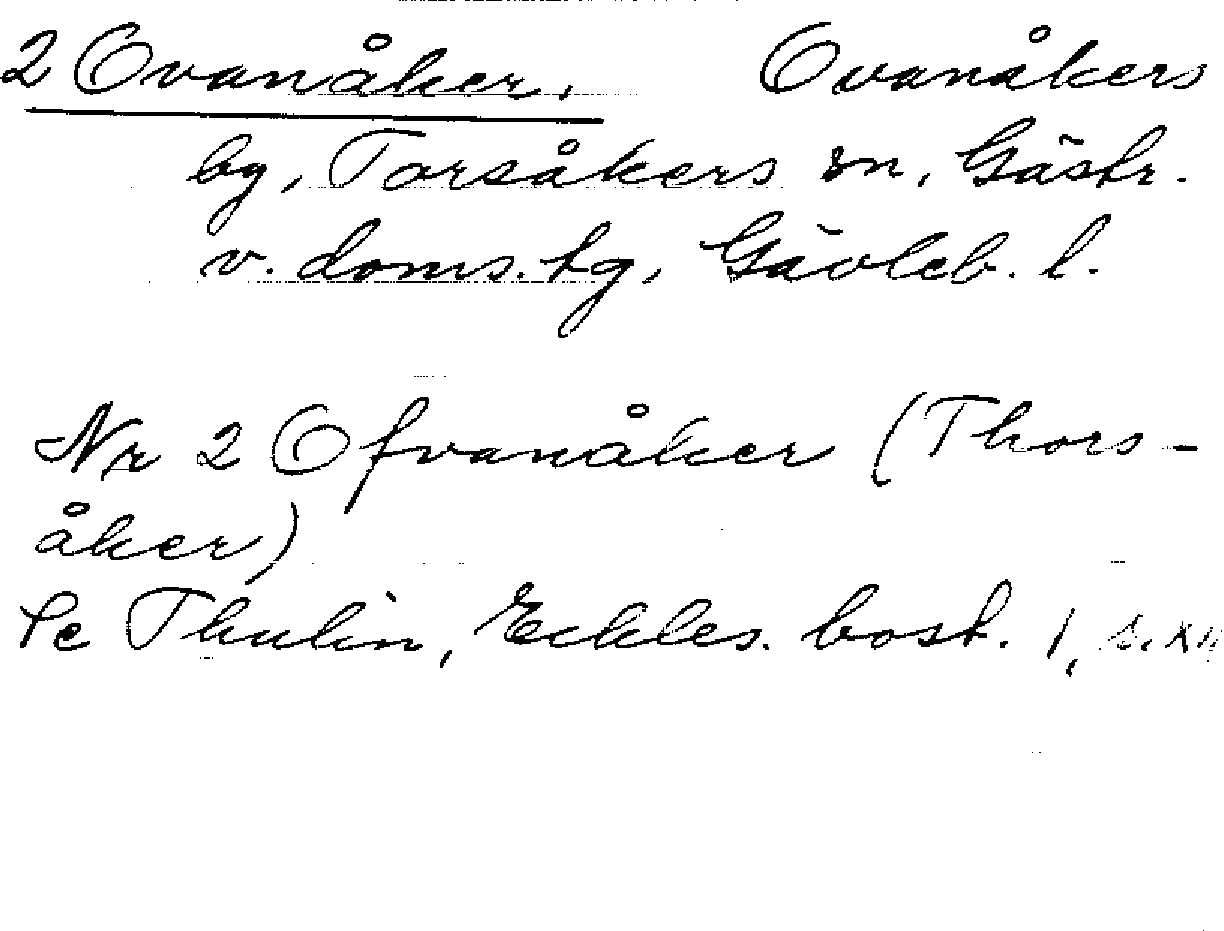 2 Ovanåker. Ovanåkers
bg, Torsåkers sn, Gästr.
v. doms. tg, Gävleb. l.
Nr 2 Ofvanåker (Thors-
åker)
Se Thulin, Eckles. bost. 1, s. XII